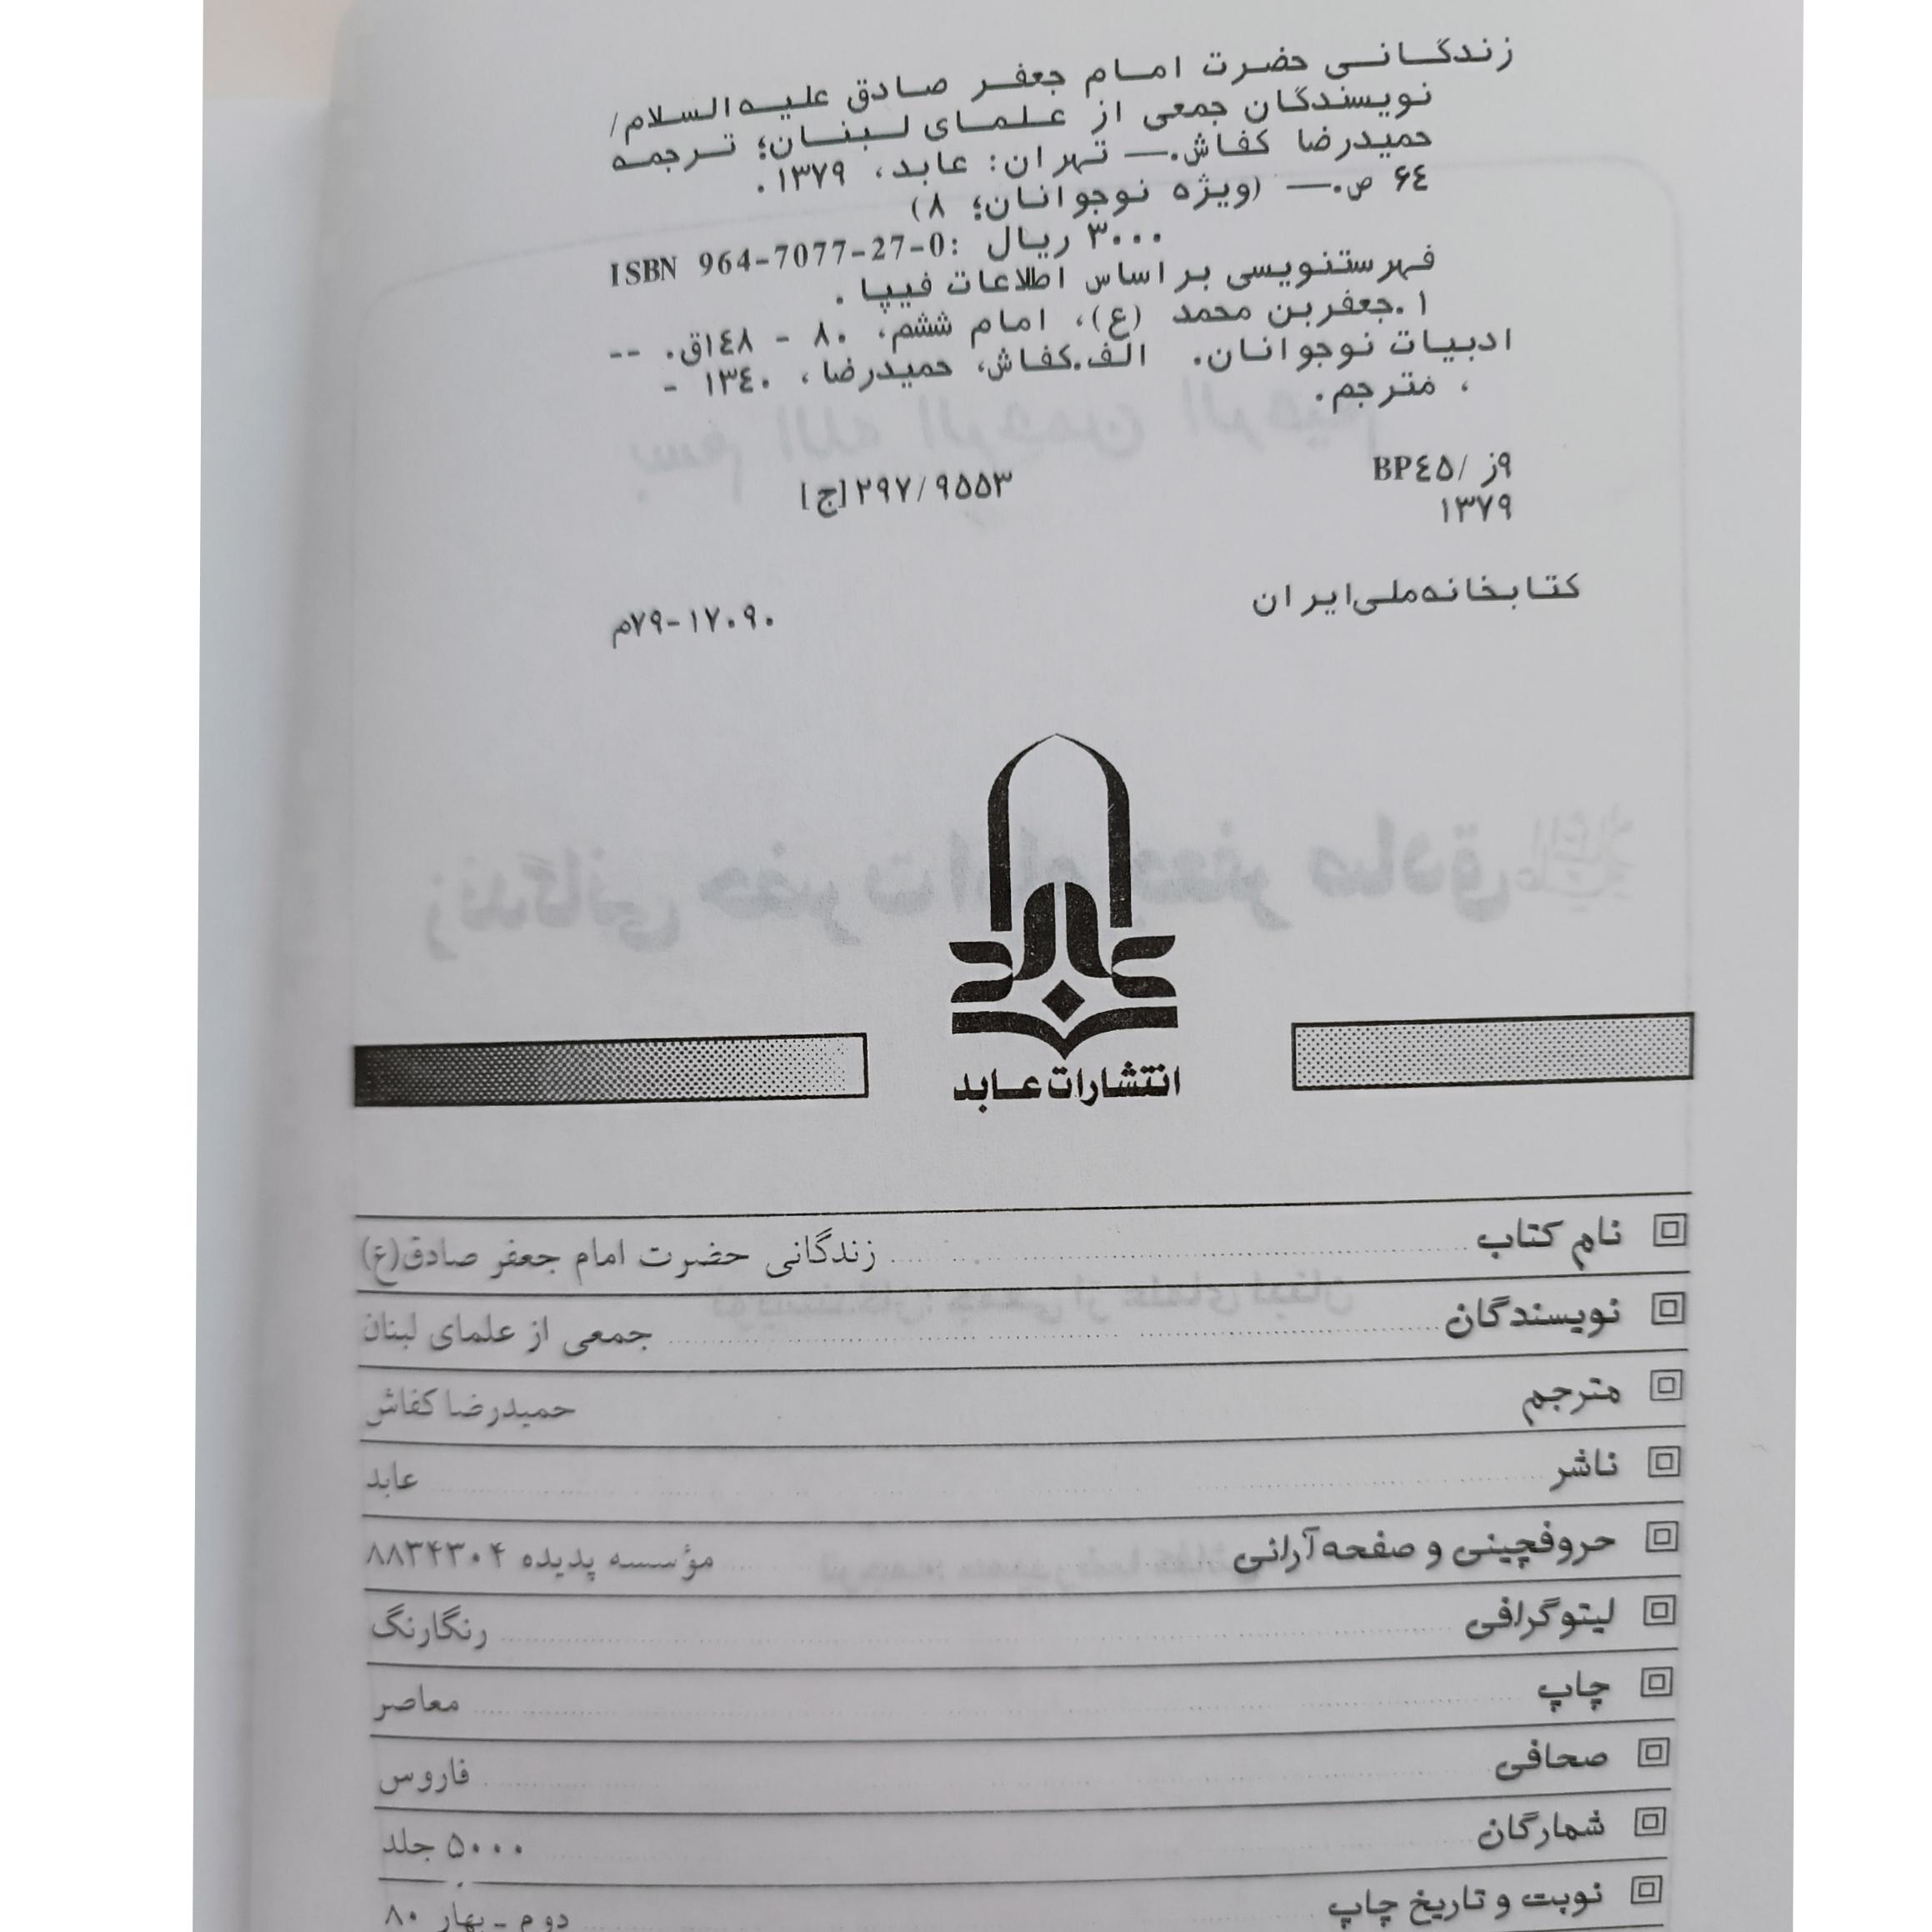 زندگانی حضرت امام جعفر صادق علیه‌السلام/
نویسندگان جمعی از علمای لبنان؛ ترجمه
حمیدرضا کفاش.— تهران: عابد، ۱۳۷۹.
۶۴ ص.— (ویژه نوجوانان؛ ۸)
ISBN 964-7077-27-0: ۳۰۰۰ ریال
فهرستنویسی براساس اطلاعات فیپا.
۱.جعفربن محمد (ع)، امام ششم، ۸۰ - ۱۴۸ق. --
ادبیات نوجوانان. الف.کفاش، حمیدرضا، ۱۳۴۰ -
، مترجم.
۹ز /BP۴۵ ۲۹۷/۹۵۵۳[ج]
۱۳۷۹
کتابخانه‌ملی‌ایران ۱۷۰۹۰-۷۹م
انتشارات عابد
نام کتاب زندگانی حضرت امام جعفر صادق(ع)
نویسندگان جمعی از علمای لبنان
مترجم حمیدرضا کفاش
ناشر عابد
حروفچینی و صفحه‌آرائی مؤسسه پدیده ۸۸۳۴۳۰۴
لیتوگرافی رنگارنگ
چاپ معاصر
صحافی فاروس
شمارگان ۵۰۰۰ جلد
نوبت و تاریخ چاپ دوم - بهار ۸۰